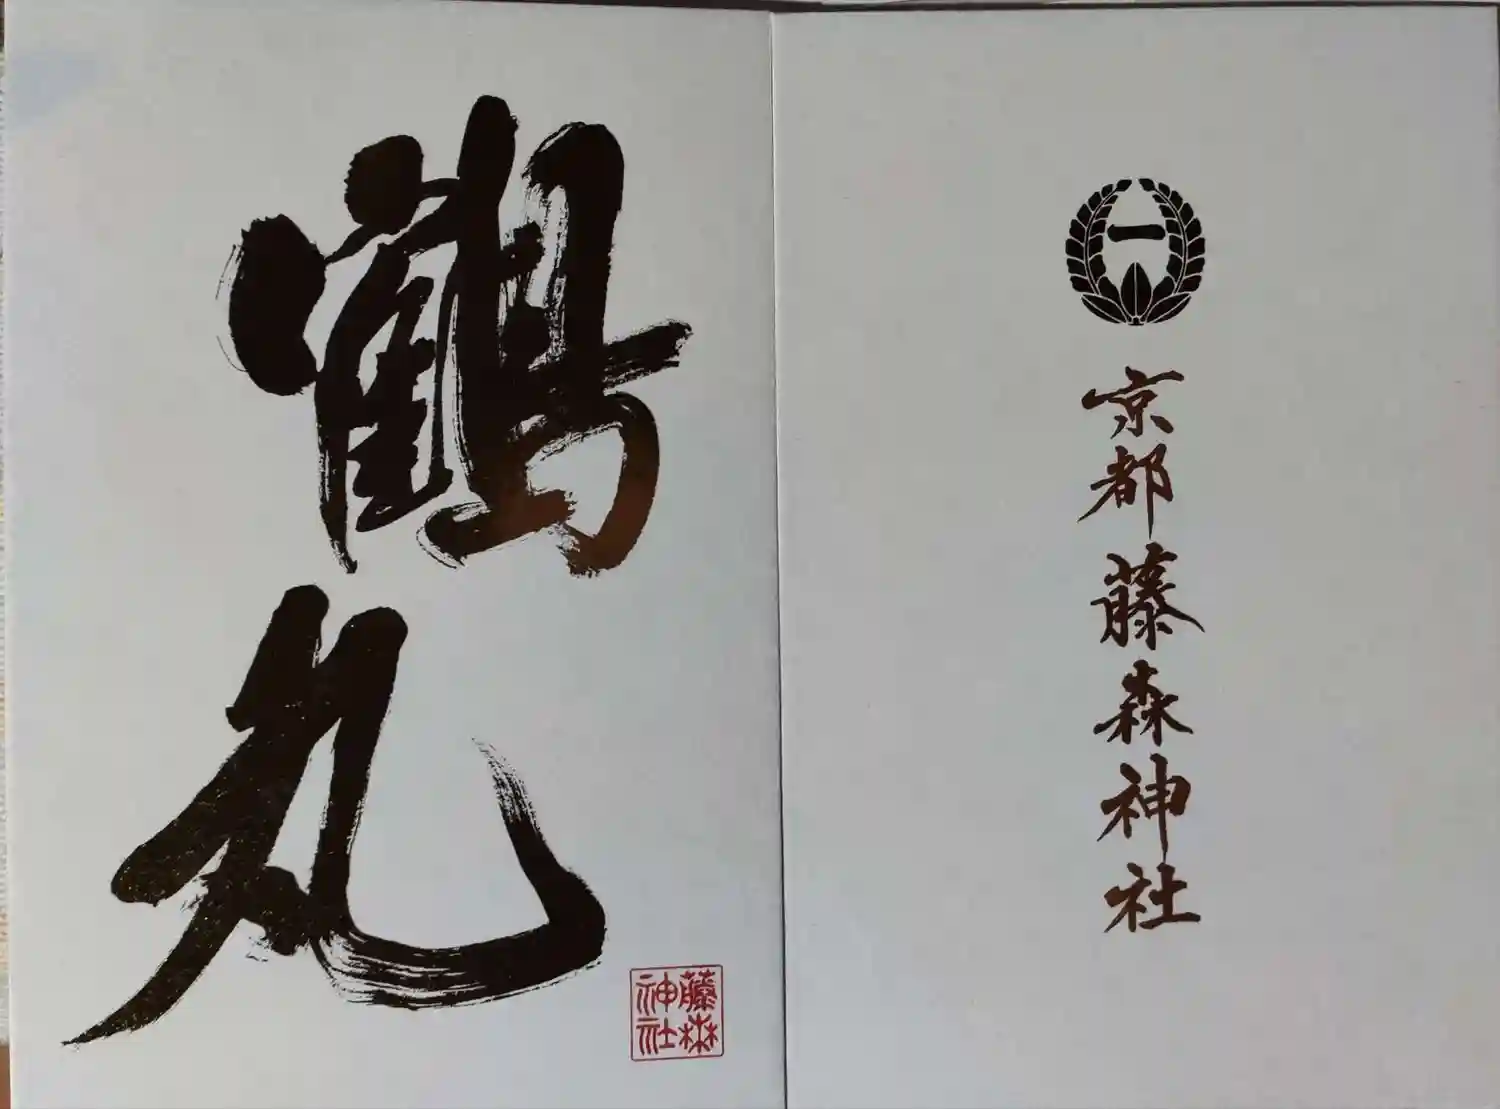 一
京都藤森神社
鶴丸
藤森
神社